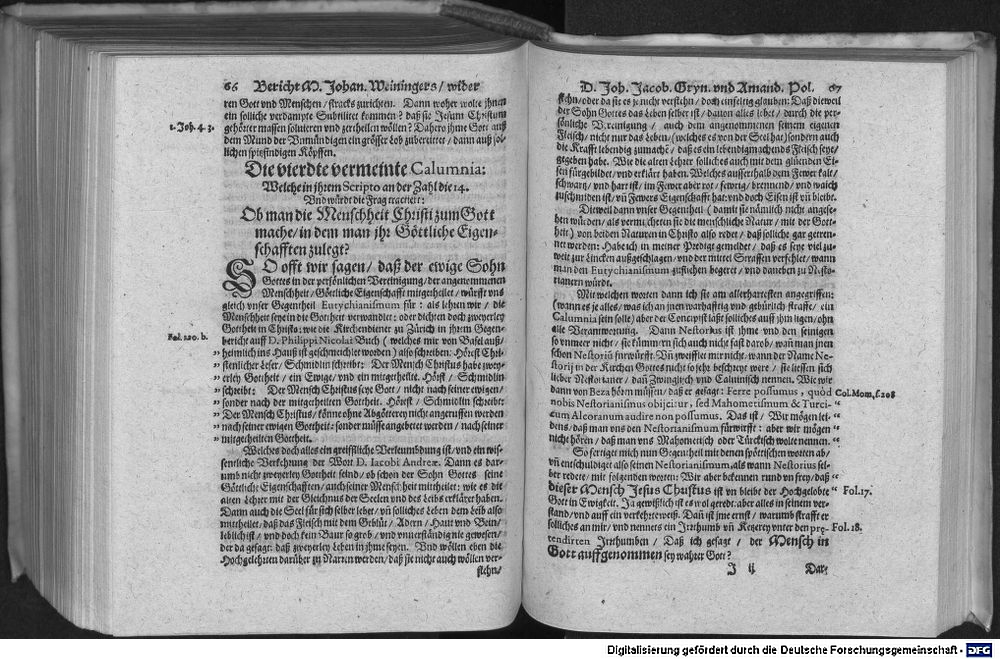 66 Bericht M. Johan. Weiningers / wider
ren Gott vnd Menschen / stracks zurichten. Dann woher wolte jhnen
ein solliche verdampte Subtilitet kommen? daß sie Jesum Christum
1. Joh. 4. 3.
gehörter massen soluieren vnd zertheilen wöllen? Dahero jhme Gott auß
dem Mund der Vnmündigen ein grösser Lob zubereitet / dann auß sölichen
spitzfindigen Köpffen.
Die vierdte vermeinte Calumnia:
Welche in jhrem Scripto an der Zahl die 14.
Vnd würdt die Frag tractiert:
Ob man die Menschheit Christi zum Gott
mache / in dem man jhr Göttliche Eigenschafften
zulegt?
SO offt wir sagen / daß der ewige Sohn
Gottes in der persönlichen Vereinigung / der angenommenen
Menschheit / Göttliche Eigenschafft mitgetheilet / würfft vns
gleich vnser Gegentheil Eutychianismum für: als lehren wir / die
Menschheit seye in die Gottheit verwandlet: oder dichten doch zweyerley
Gottheit in Christo: wie die Kirchendiener zu Zürich in jhrem Gegenbericht
Fol. 120. b.
auff D. Philippi Nicolai Buch ( welches mir von Basel auß /
„ heimlich ins Hauß ist geschmeichlet worden ) also schreiben: Hörst Christenlicher
„ Leser / Schmidlin schreibt: Der Mensch Christus habe zweyerley
„ Gottheit / ein Ewige / vnd ein mitgetheilte. Hörst / Schmidlin
„ schreibt: Der Mensch Christus / seye Gott / nicht nach seiner ewigen /
„ sonder nach der mitgetheilten Gottheit. Hörest / Schmidlin schreibt
„ Der Mensch Christus / könne ohne Abgötterey nicht angeruffen werden
„ nach seiner ewigen Gottheit: sonder müsse angebettet werden / nach seiner
„ mitgetheilten Gottheit.
Welches doch alles ein greiffliche Verleumbdung ist / vnd ein wissentliche
Verkehrung der Wort D. Iacobi Andreæ. Dann es darumb
nicht zweyerley Gottheit seind / ob schon der Sohn Gottes seine
Göttliche Eigenschafften / auch seiner Menschheit mittheilet: wie es die
alten Lehrer mit der Gleichnus der Seelen vnd des Leibs erkläret haben.
Dann auch die Seel für sich selber lebet / vñ sollches Leben dem Leib also
mittheilet / daß das Fleisch mit dem Geblüt / Adern / Haut vnd Bein /
leblich ist / vnd doch kein Baur so grob / vnd vnuerständig nie gewesen /
der da gesagt: daß zweyerley Leben in jhme seyen. Vnd wöllen eben die
Hochgelehrten darüber zu Narren werden / daß sie nicht auch wöllen verstehn/
D. Joh. Jacob. Gryn. vnd Amand. Pol. 67
stehn / oder da sie es je nicht verstehn / doch einfeltig glauben: Daß dieweil
der Sohn Gottes das Leben selber ist / dauon alles lebet / durch die persönliche
Vereinigung / auch dem angenommenen seinem eigenen
Fleisch / nicht nur das Leben / (welches es von der Seel hat) sondern auch
die Krafft lebendig zumachẽ / daß es ein lebendigmachends Fleisch seye /
gegeben habe. Wie die alten Lehrer solliches auch mit dem glüenden Eisen
fürgebildet / vnd erklärt haben. Welches ausserthalb dem Fewer kalt /
schwartz / vnd hart ist / im Fewer aber rot / fewrig / brennend / vnd waich
zuschmiden ist / vñ Fewers Eigenschafft hat: vnd doch Eisen ist vñ bleibt.
Dieweil dann vnser Gegentheil ( damit sie nämlich nicht angesehen
würden / als vermischten sie die menschliche Natur / mit der Gottheit )
von beiden Naturen in Christo also redet / daß solliche gar getrennet
werden: Habe ich in meiner Predigt gemeldet / daß es seye viel zuweit
zur Lincken außgeschlagen / vnd der mittel Strassen verfehlet / wann
man den Eutychianismum zufliehen begeret / vnd daneben zu Nestorianern
würdt.
Mit welchen worten dann ich sie am allerhartesten angegriffen:
(wann es je alles / was ich an jnen warhafftig vnd gebürlich straffe / ein
Calumnia sein solle) aber der Concipist laßt solliches auff jhm ligen / ohn
alle Verantwortung. Dann Nestorius ist jhme vnd den seinigen
so vnmehr nicht / sie kümmern sich auch nicht fast darob / wañ man jnen
schon Nestoriũ fürwürfft. Vñ zweiffelt mir nicht / wann der Name Nestorij
in der Kirchen Gottes nicht so sehr beschreyt were / sie liessen sich
lieber Nestorianer / dañ Zwinglisch vnd Caluinisch nennen. Wie wir
dann von Beza hörn müssen / daß er gesagt: Ferre possumus, quòd
Col. Mom. f. 208
nobis Nestorianismus obijcitur, sed Mahometismum & Turcicum
Alcoranum audire non possumus. Das ist / Wir mögen leidens /
daß man vns den Nestorianismum fürwirfft: aber wir mögen “
nicht hören / daß man vns Mahometisch oder Türckisch wolte nennen. “
So fertiget mich nun Gegentheil mit denen spöttischen worten ab /
vñ entschuldiget also seinen Nestorianismum, als wann Nestorius selber
redete / mit folgenden worten: Wir aber bekennen rund vñ frey / daß
dieser Mensch Jesus Christus ist vñ bleibt der Hochgelobte „ Fol. 17.
Gott in Ewigkeit. Ja gewißlich ist es wol geredt: aber alles in seinem verstand /
vnd auff ein verkehrte weiß. Dañ ist jme ernst / warumb strafft er
solliches an mir / vnd nennets ein Irrthumb vñ Ketzerey vnter den prętendirten
Fol. 18.
Irrthumben / Daß ich gesagt / der Mensch in
Gott auffgenommen sey wahrer Gott?
J ij Dar-
Digitalisierung gefördert durch die Deutsche Forschungsgemeinschaft - DFG